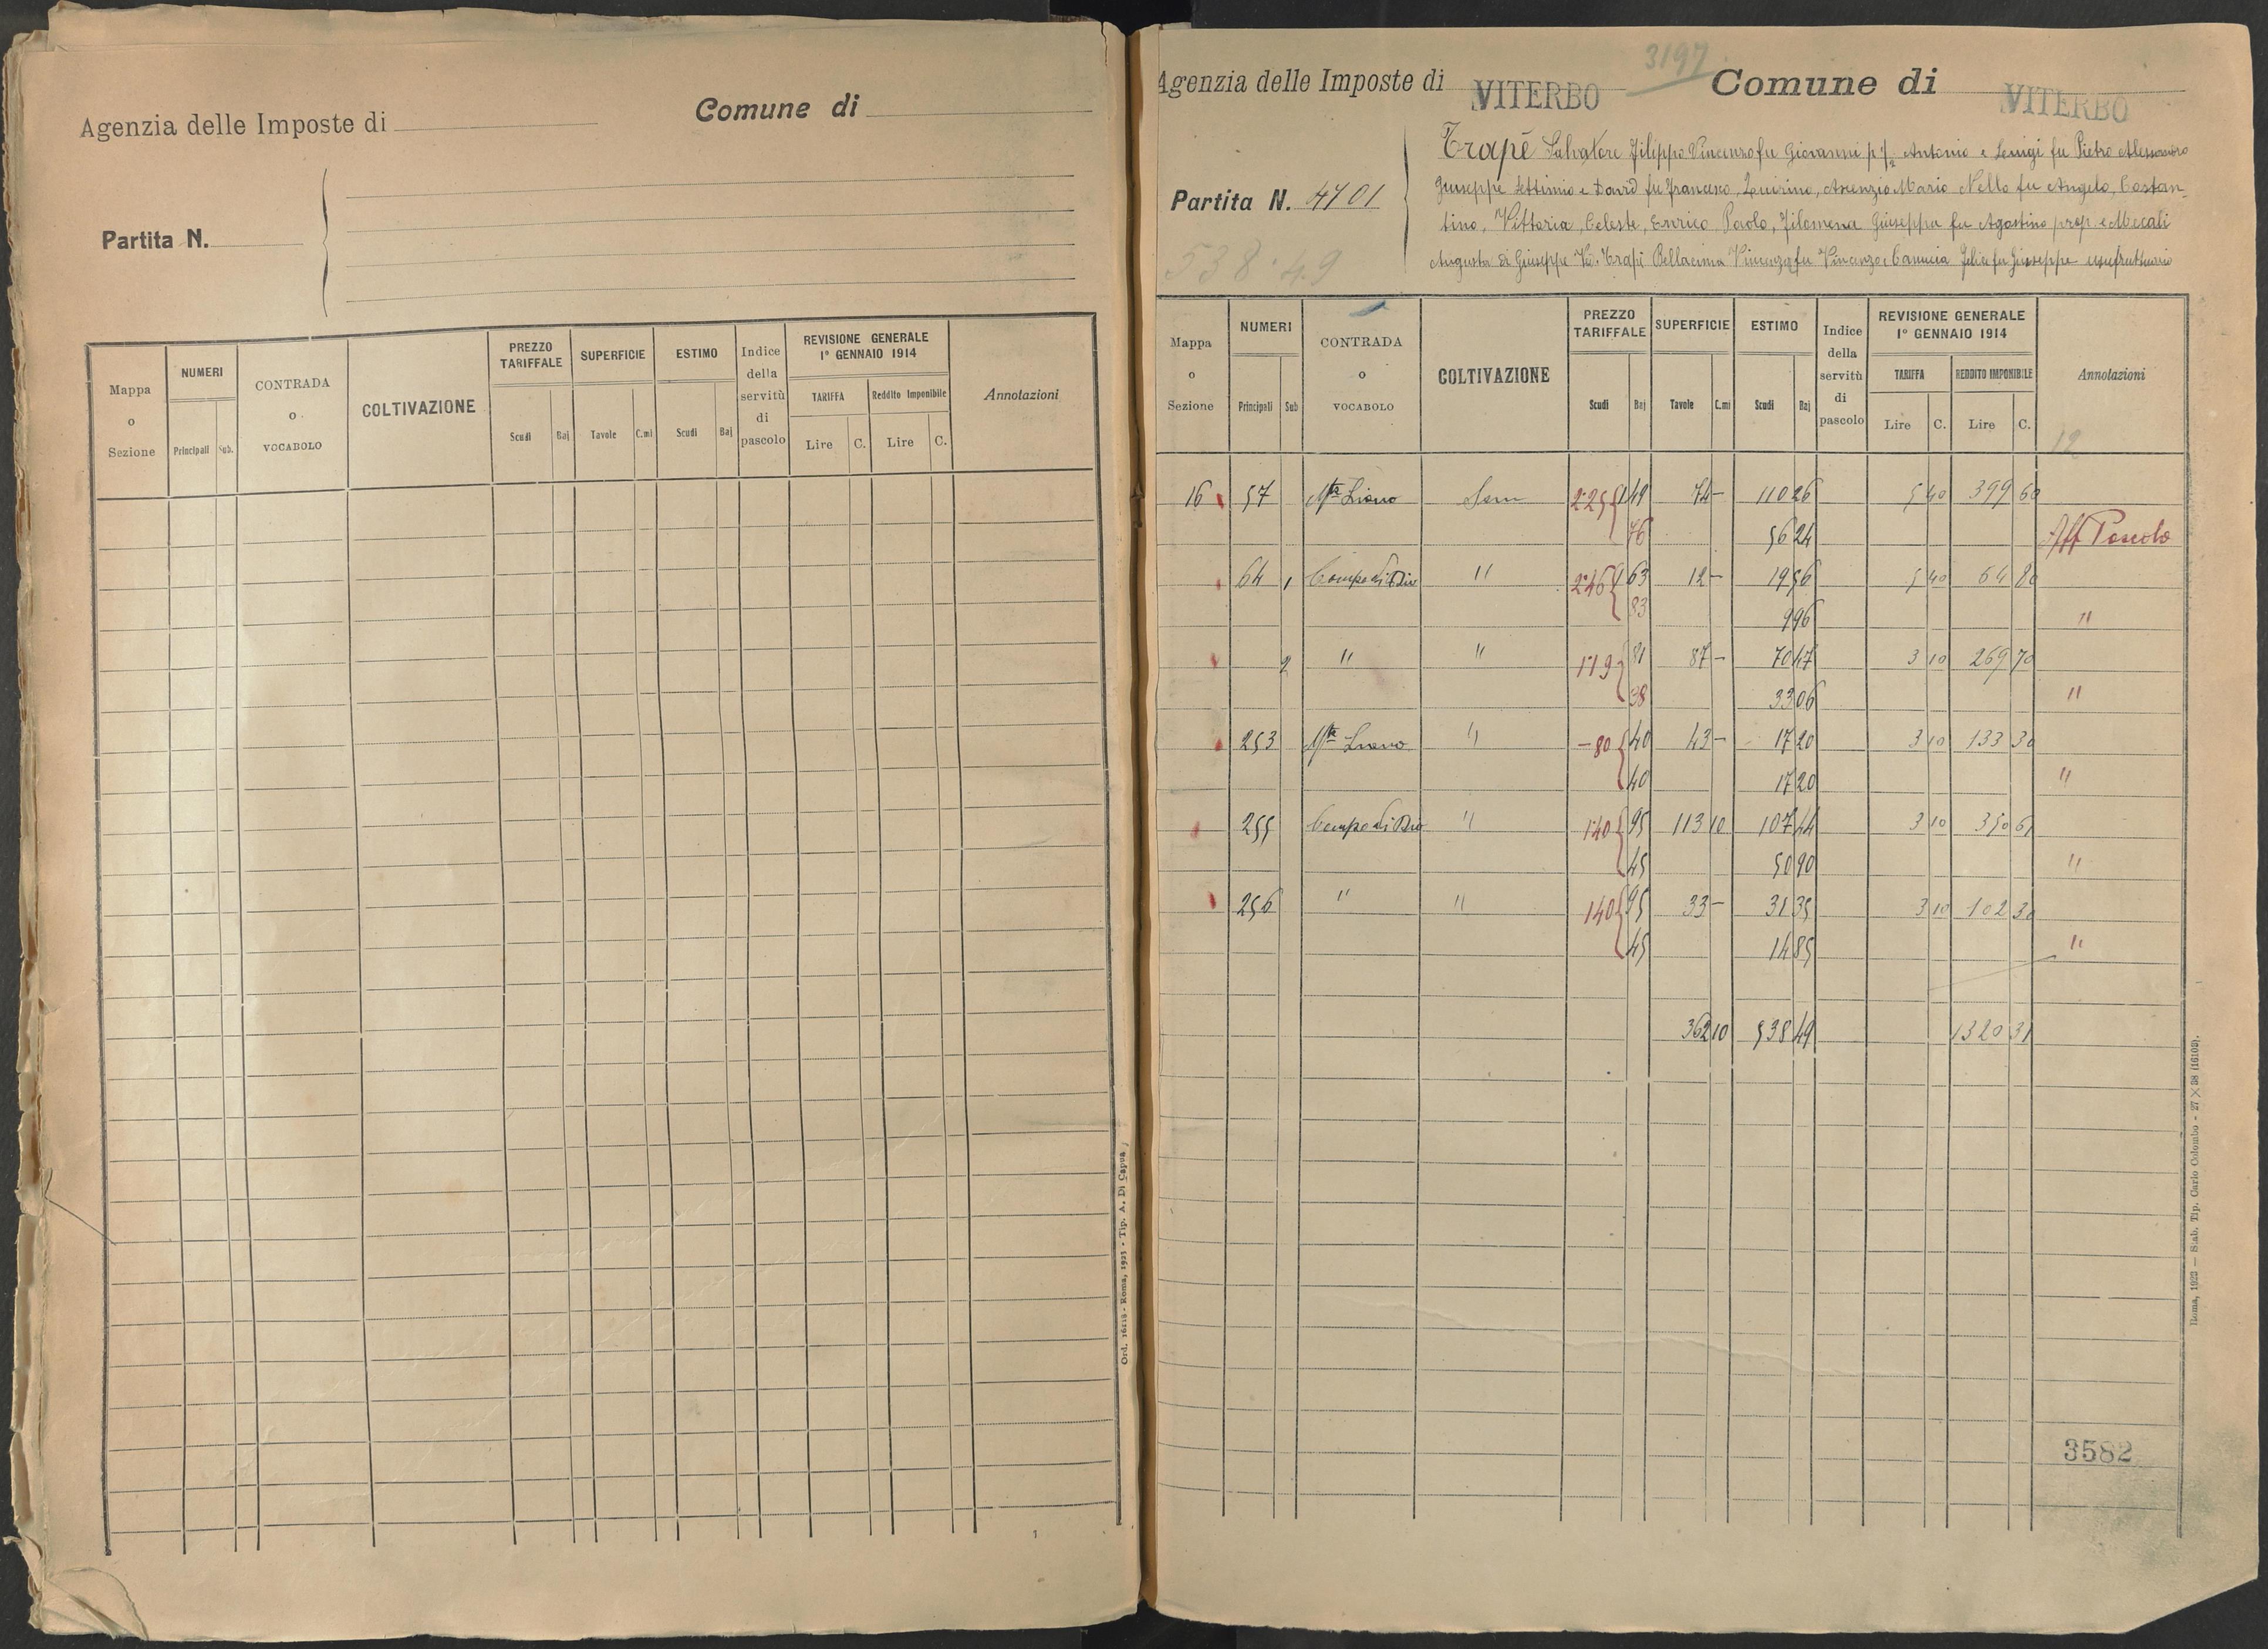 Agenzia delle Imposte di
Comune di
Partita N.
Mappa o Sezione
NUMERI
Principali
Sub.
CONTRADA o VOCABOLO
COLTIVAZIONE
PREZZO TARIFFALE
Scudi
Baj
SUPERFICIE
Tavole
C.mi
ESTIMO
Scudi
Baj
Indice della servitù di pascolo
REVISIONE GENERALE
1° GENNAIO 1914
TARIFFA
Lire
C.
Reddito Imponibile
Lire
C.
Annotazioni
Ord. 16118 - Roma, 1925 - Tip. A. Di Capua
3197
Agenzia delle Imposte di VITERBO Comune di VITERBO
Partita N. 4701
538.49
Trapè Salvatore Filippo Vincenzo fu Giovanni p Antonio e Luigi fu Pietro Alessandro
Giuseppe Settimio e David fu Francesco, Quirino, Ascenzio Mario Nello fu Angelo, Costan-
tino, Vittoria, Celeste, Enrico Paolo, Filomena Giuseppa fu Agostino prop. e Mecali
Augusta di Giuseppe Trapè Bellacima Vincenza fu Vincenzo e Felice fu Giuseppe usufruttuario
Mappa o Sezione
NUMERI
Principali
Sub
CONTRADA o VOCABOLO
COLTIVAZIONE
PREZZO TARIFFALE
Scudi
Baj
SUPERFICIE
Tavole
C.mi
ESTIMO
Scudi
Baj
Indice della servitù di pascolo
REVISIONE GENERALE
1° GENNAIO 1914
TARIFFA
Lire
C.
REDDITO IMPONIBILE
Lire
C.
Annotazioni
12
16 57 Sem 2.25 1 49 74 - 110 26 5 40 399 60
76 56 24 Aff Pascolo
64 1 Campo di Dio " 2.46 1 63 12 - 19 56 5 40 64 80
83 9 96 "
2 " " 1.19 81 87 - 70 47 3 10 269 70
38 33 06 "
253 " - 80 40 43 - 17 20 3 10 133 30
40 17 20 "
255 Campo di Dio " 1.40 95 113 10 107 44 3 10 350 61
45 50 90 "
256 " " 1.40 95 33 - 31 35 3 10 102 30
45 14 85 "
362 10 538 49 1320 31
3582
Roma, 1922 — Stab. Tip. Carlo Colombo - 27 X 38 (16103).